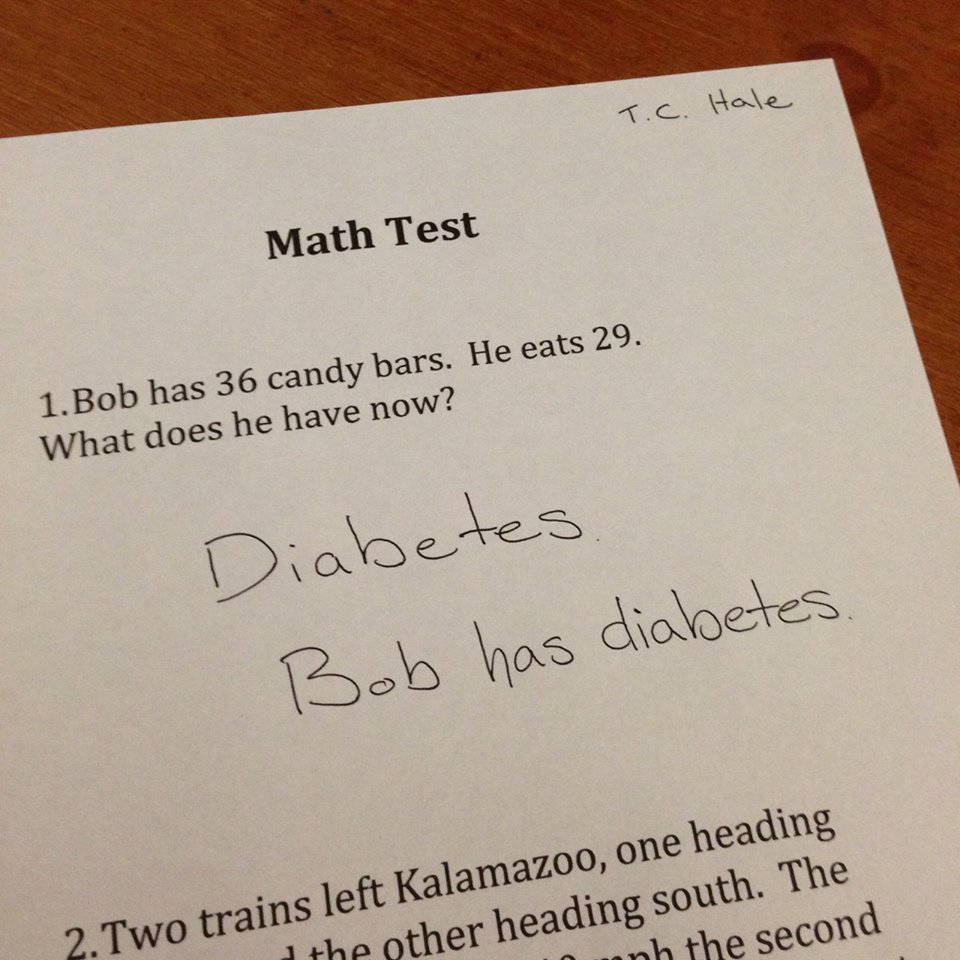 T.C. Hale
Math Test
1. Bob has 36 candy bars. He eats 29.
What does he have now?
Diabetes.
Bob has diabetes.
2. Two trains left Kalamazoo, one heading
the other heading south. The
mph the second